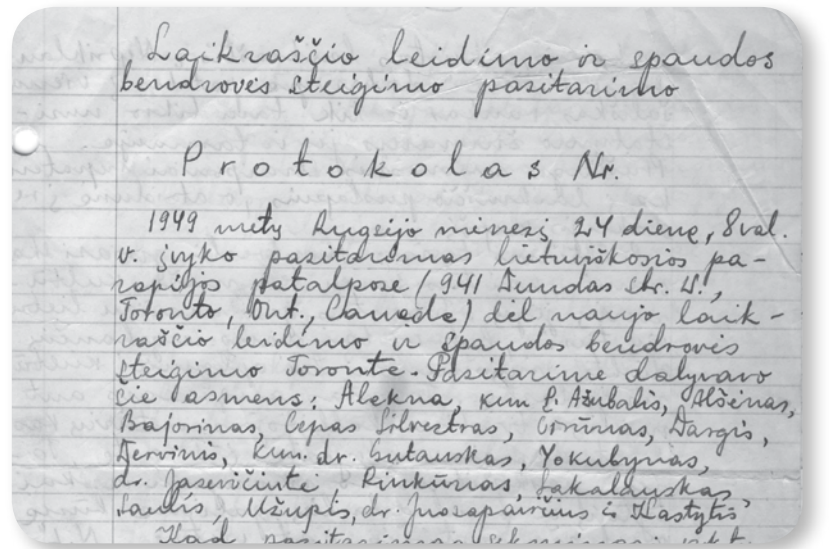 Laikraščio leidimo ir spaudos
bendrovės steigimo pasitarimo
Protokolas Nr.
1949 metų Rugsėjo mėnesį 24 dieną, 8 val.
v. įvyko pasitarimas lietuviškosios pa-
rapijos patalpose (941 Dundas Str. W.,
Toronto, Ont., Canada) dėl naujo laik-
raščio leidimo ir spaudos bendrovės
steigimo Toronte. Pasitarime dalyvavo
šie asmens: Alekna, kun. P. Ažubalis, Alšėnas,
Bajorinas, Cepas Silvestras, Dargis,
Dervinis, kun. dr. Gutauskas, Yokubynas,
dr. Jasevičiutė, Rinkūnas, Sakalauskas,
Saulis, Užupis, dr. Juosapaivičius ir Kastytis
Kad pasitarimas